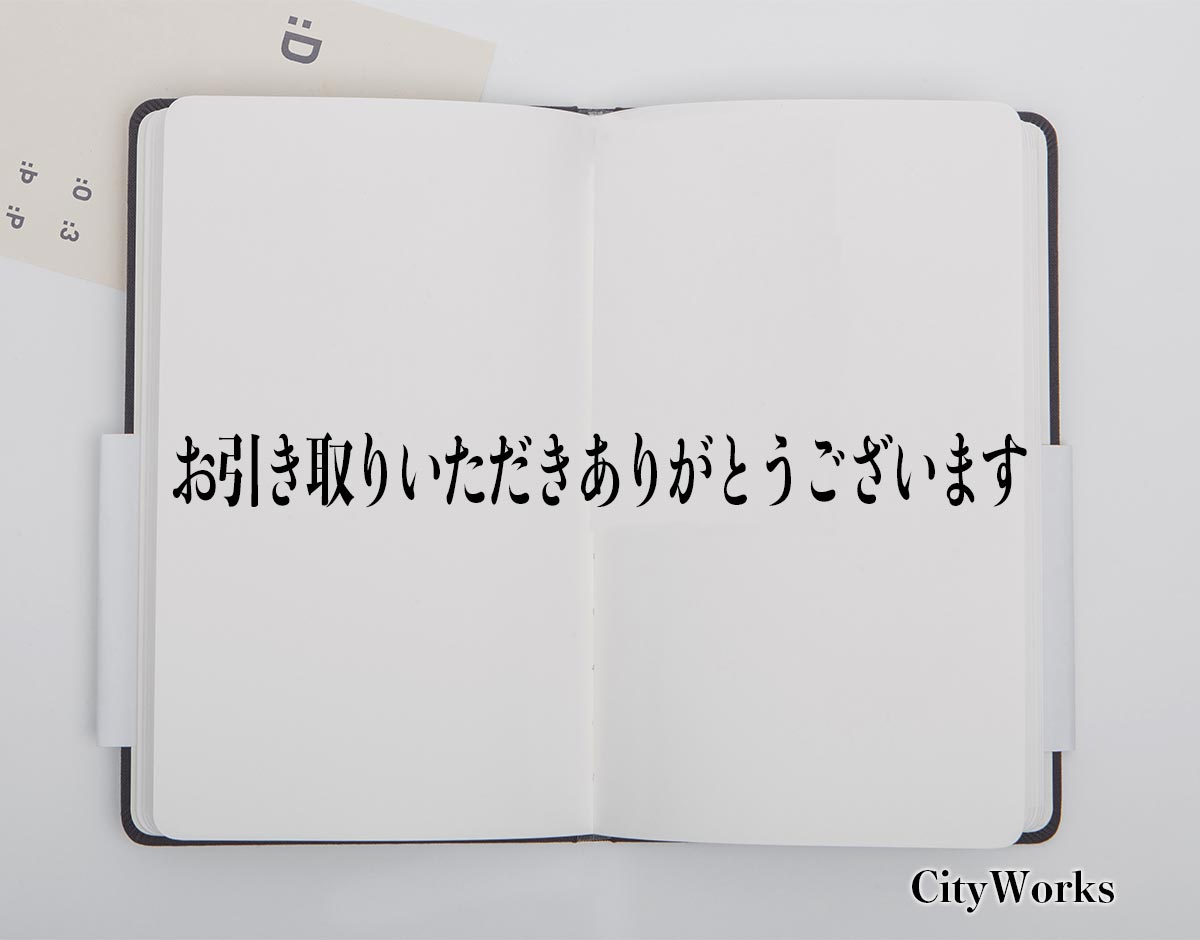 :D
:P :O
:P :3
お引き取りいただきありがとうございます
CityWorks